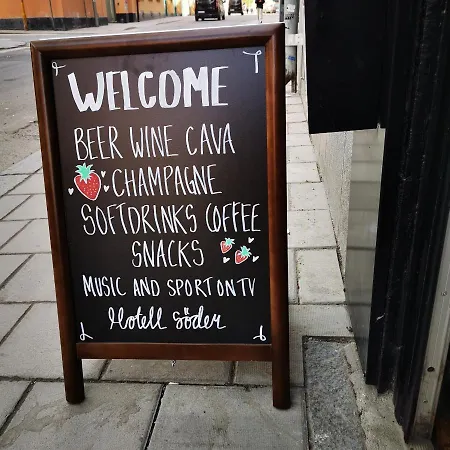 WELCOME
BEER WINE CAVA
CHAMPAGNE
SOFTDRINKS COFFEE
SNACKS
MUSIC AND SPORT ON TV
Hotell Söder